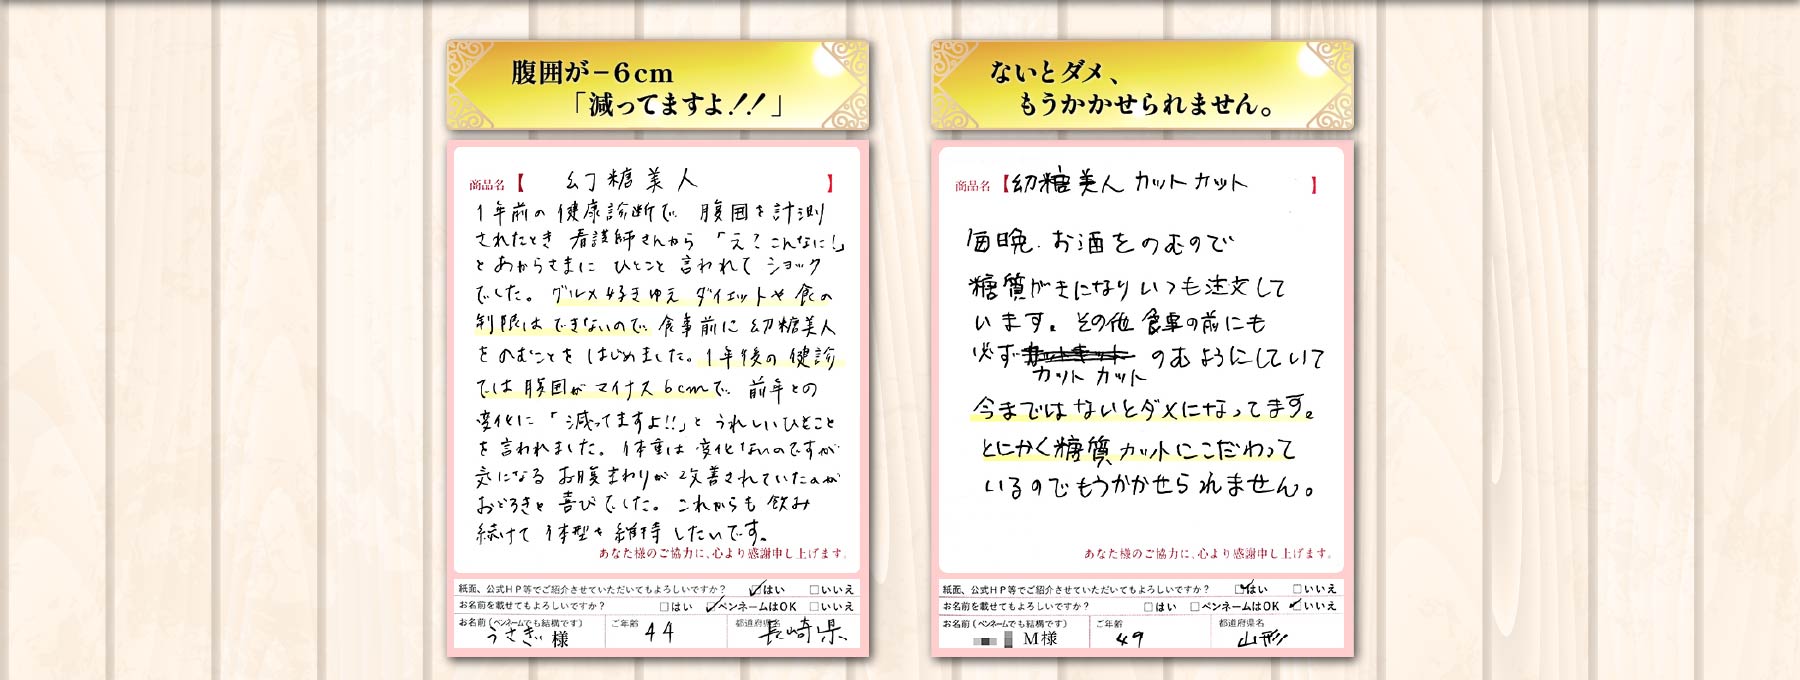 腹囲が−6cm
「減ってますよ!!」
商品名【 幻糖美人 】
1年前の健康診断で、腹囲を計測
されたとき 看護師さんから「え?こんなに!」
とあからさまに ひとこと 言われて ショック
でした。グルメ好きゆえ ダイエットや食の
制限は できないので、食事前に 幻糖美人
をのむことを はじめました。1年後の健診
では 腹囲が マイナス6cmで、前年との
変化に「減ってますよ!!」と うれしいひとこと
を言われました。体重は 変化ないのですが
気になる お腹まわりが 改善されていたのが
おどろきと 喜びでした。これからも 飲み
続けて 体型を 維持したいです。
あなた様のご協力に、心より感謝申し上げます。
紙面、公式HP等でご紹介させていただいてもよろしいですか? ☑はい □いいえ
お名前を載せてもよろしいですか? □はい ☑ペンネームはOK □いいえ
お名前(ペンネームでも結構です) ご年齢 都道府県名
うさぎ 様 44 長崎県
ないとダメ、
もうかかせられません。
商品名【幻糖美人 カットカット 】
毎晩、お酒をのむので
糖質がきになり いつも注文して
います。その他 食事の前にも
必ず のむようにしていて
カット カット
今ではないとダメになってます。
とにかく糖質カットにこだわって
いるのでもうかかせられません。
あなた様のご協力に、心より感謝申し上げます。
紙面、公式HP等でご紹介させていただいてもよろしいですか? ☑はい □いいえ
お名前を載せてもよろしいですか? □はい □ペンネームはOK ☑いいえ
お名前(ペンネームでも結構です) ご年齢 都道府県名
M様 49 山形